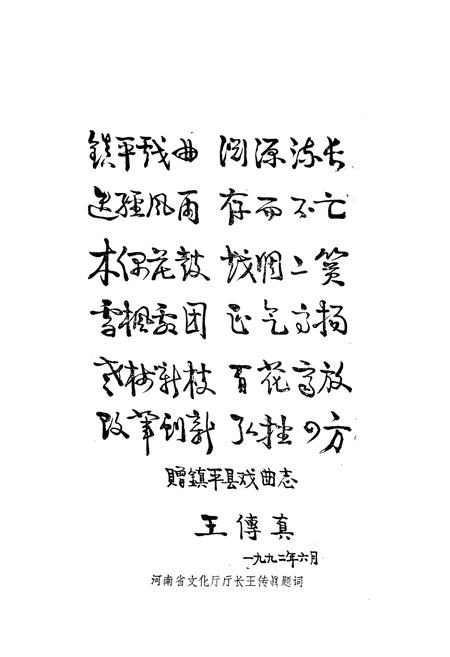 鎮平戏曲 渊源流长
迭经風雨 存而不亡
木偶花鼓 戏
雪枫剧团 正气高扬
老树新枝 百花齐放
改革创新 弘 四方
贈鎮平县戏曲志
王傳真
一九九二年六月
河南省文化厅厅长王传真题词